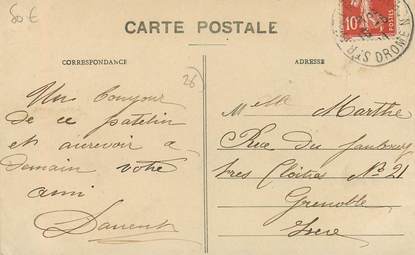 50 €
CARTE POSTALE
10
CORRESPONDANCE
ADRESSE
26
Un bonjour
de ce patelin
et aurevoir a
demain votre
ami
Melle Marthe
Rue du faubourg
tres Cloitres No 21
Grenoble
Isere